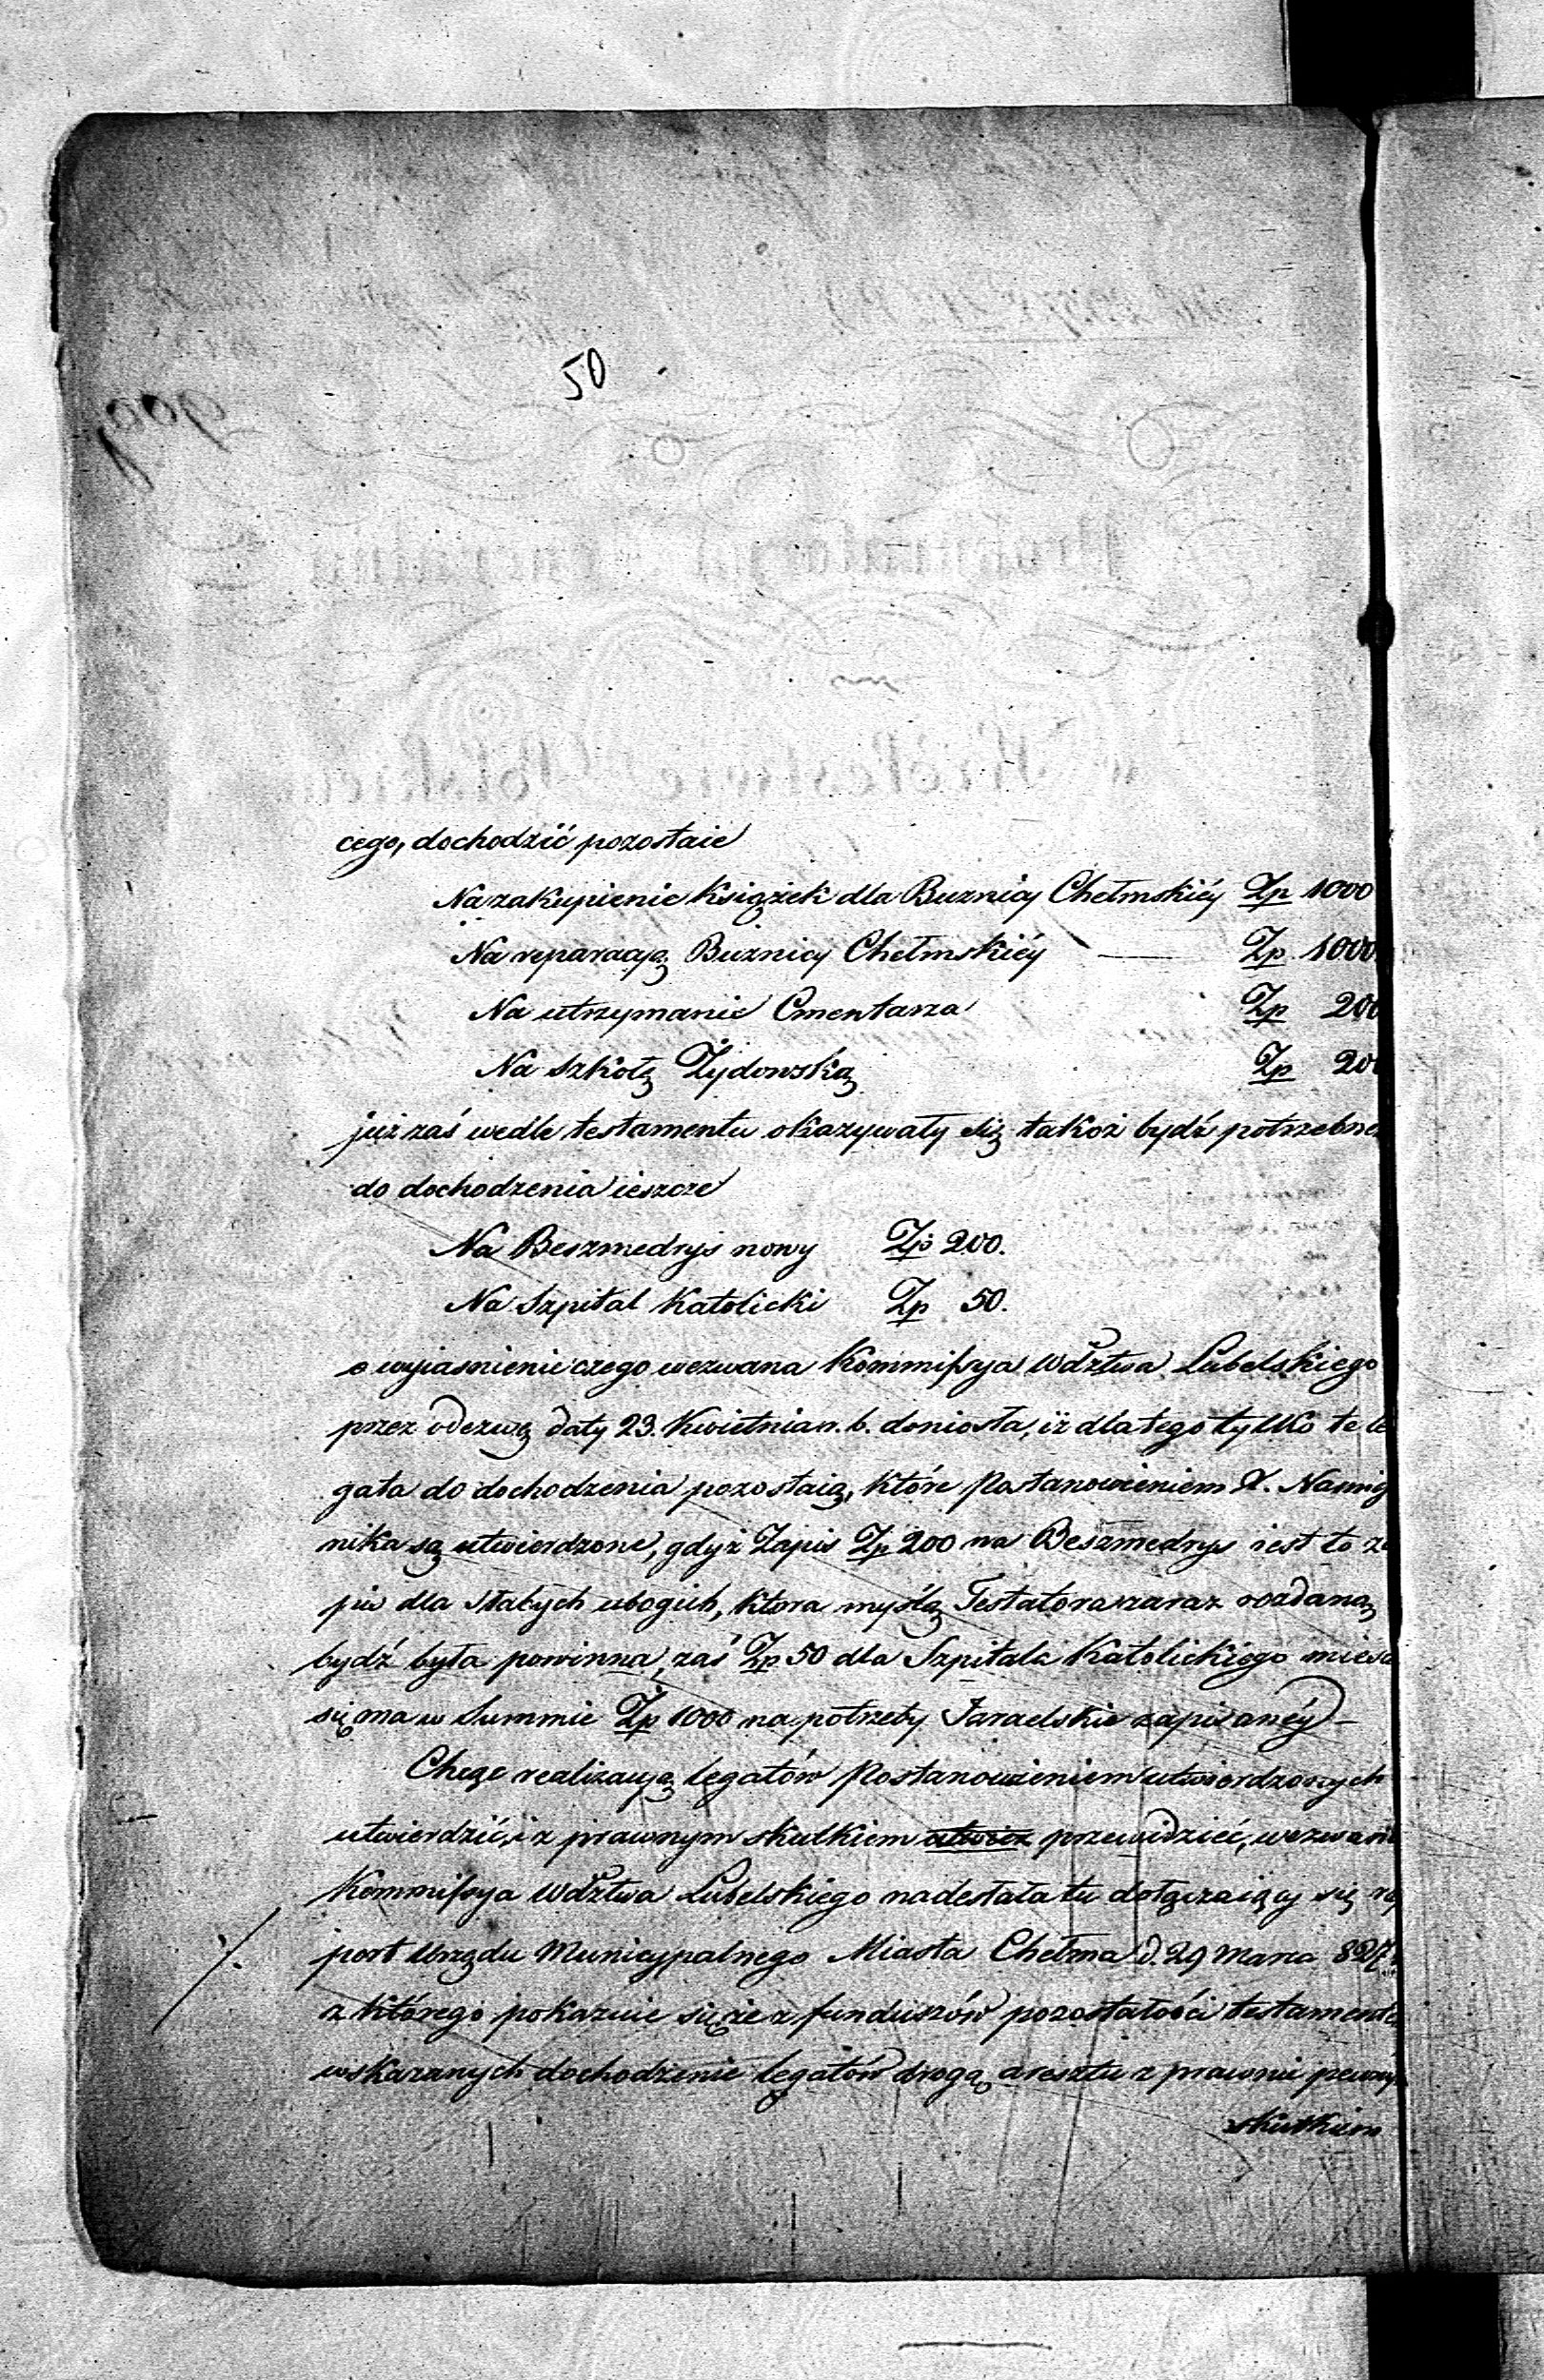 50
cego, dochodzić pozostaie
Na zakupienie książek dla Buznicy Chełmskiéy Zp 1000
Na reparacyą Bużnicy Chełmskiéy — Zp 1000
Na utrzymanie Cmentarza Zp 200
Na szkołę Żydowską Zp 200
już zaś wedle testamentu okazywały się takoż bydź potrzebne
do dochodzenia ieszcze
Na Beszmedryś nowy Zp 200.
Na Szpital Katolicki Zp 50.
o wyiasnienie czego wezwana Kommissya Wdztwa Lubelskiego
przez odezwę daty 23. Kwietnia r. b. doniosła, iż dla tego tylko te le
gata do dochodzenia pozostaią, które Postanowieniem X. Namię
nika są utwierdzone, gdyż Zapis Zp 200 na Beszmedrys iest to za
pis dla słabych ubogich, ktora myślą Testatora zaraz rozdaną
bydź była powinna, zaś Zp 50 dla Szpitala Katolickiego mieś
się ma w Summie Zp 1000 na potrzeby Izraelskie zapisanéy –
Chcąc realizacyą legatów Postanowieniem utwierdzonych
utwierdzić, i z prawnym skutkiem przewidzieć, wezwana
Kommissya Wdztwa Lubelskiego nadesłała tu dołączaiący się ra
port Urzędu Municypalnego Miasta Chełma d. 29 Marca 827
z którego pokazuie się że z funduszów pozostałości testamente
wskazanych dochodzenie legatów drogą aresztu z prawnie pewny
skutkiem